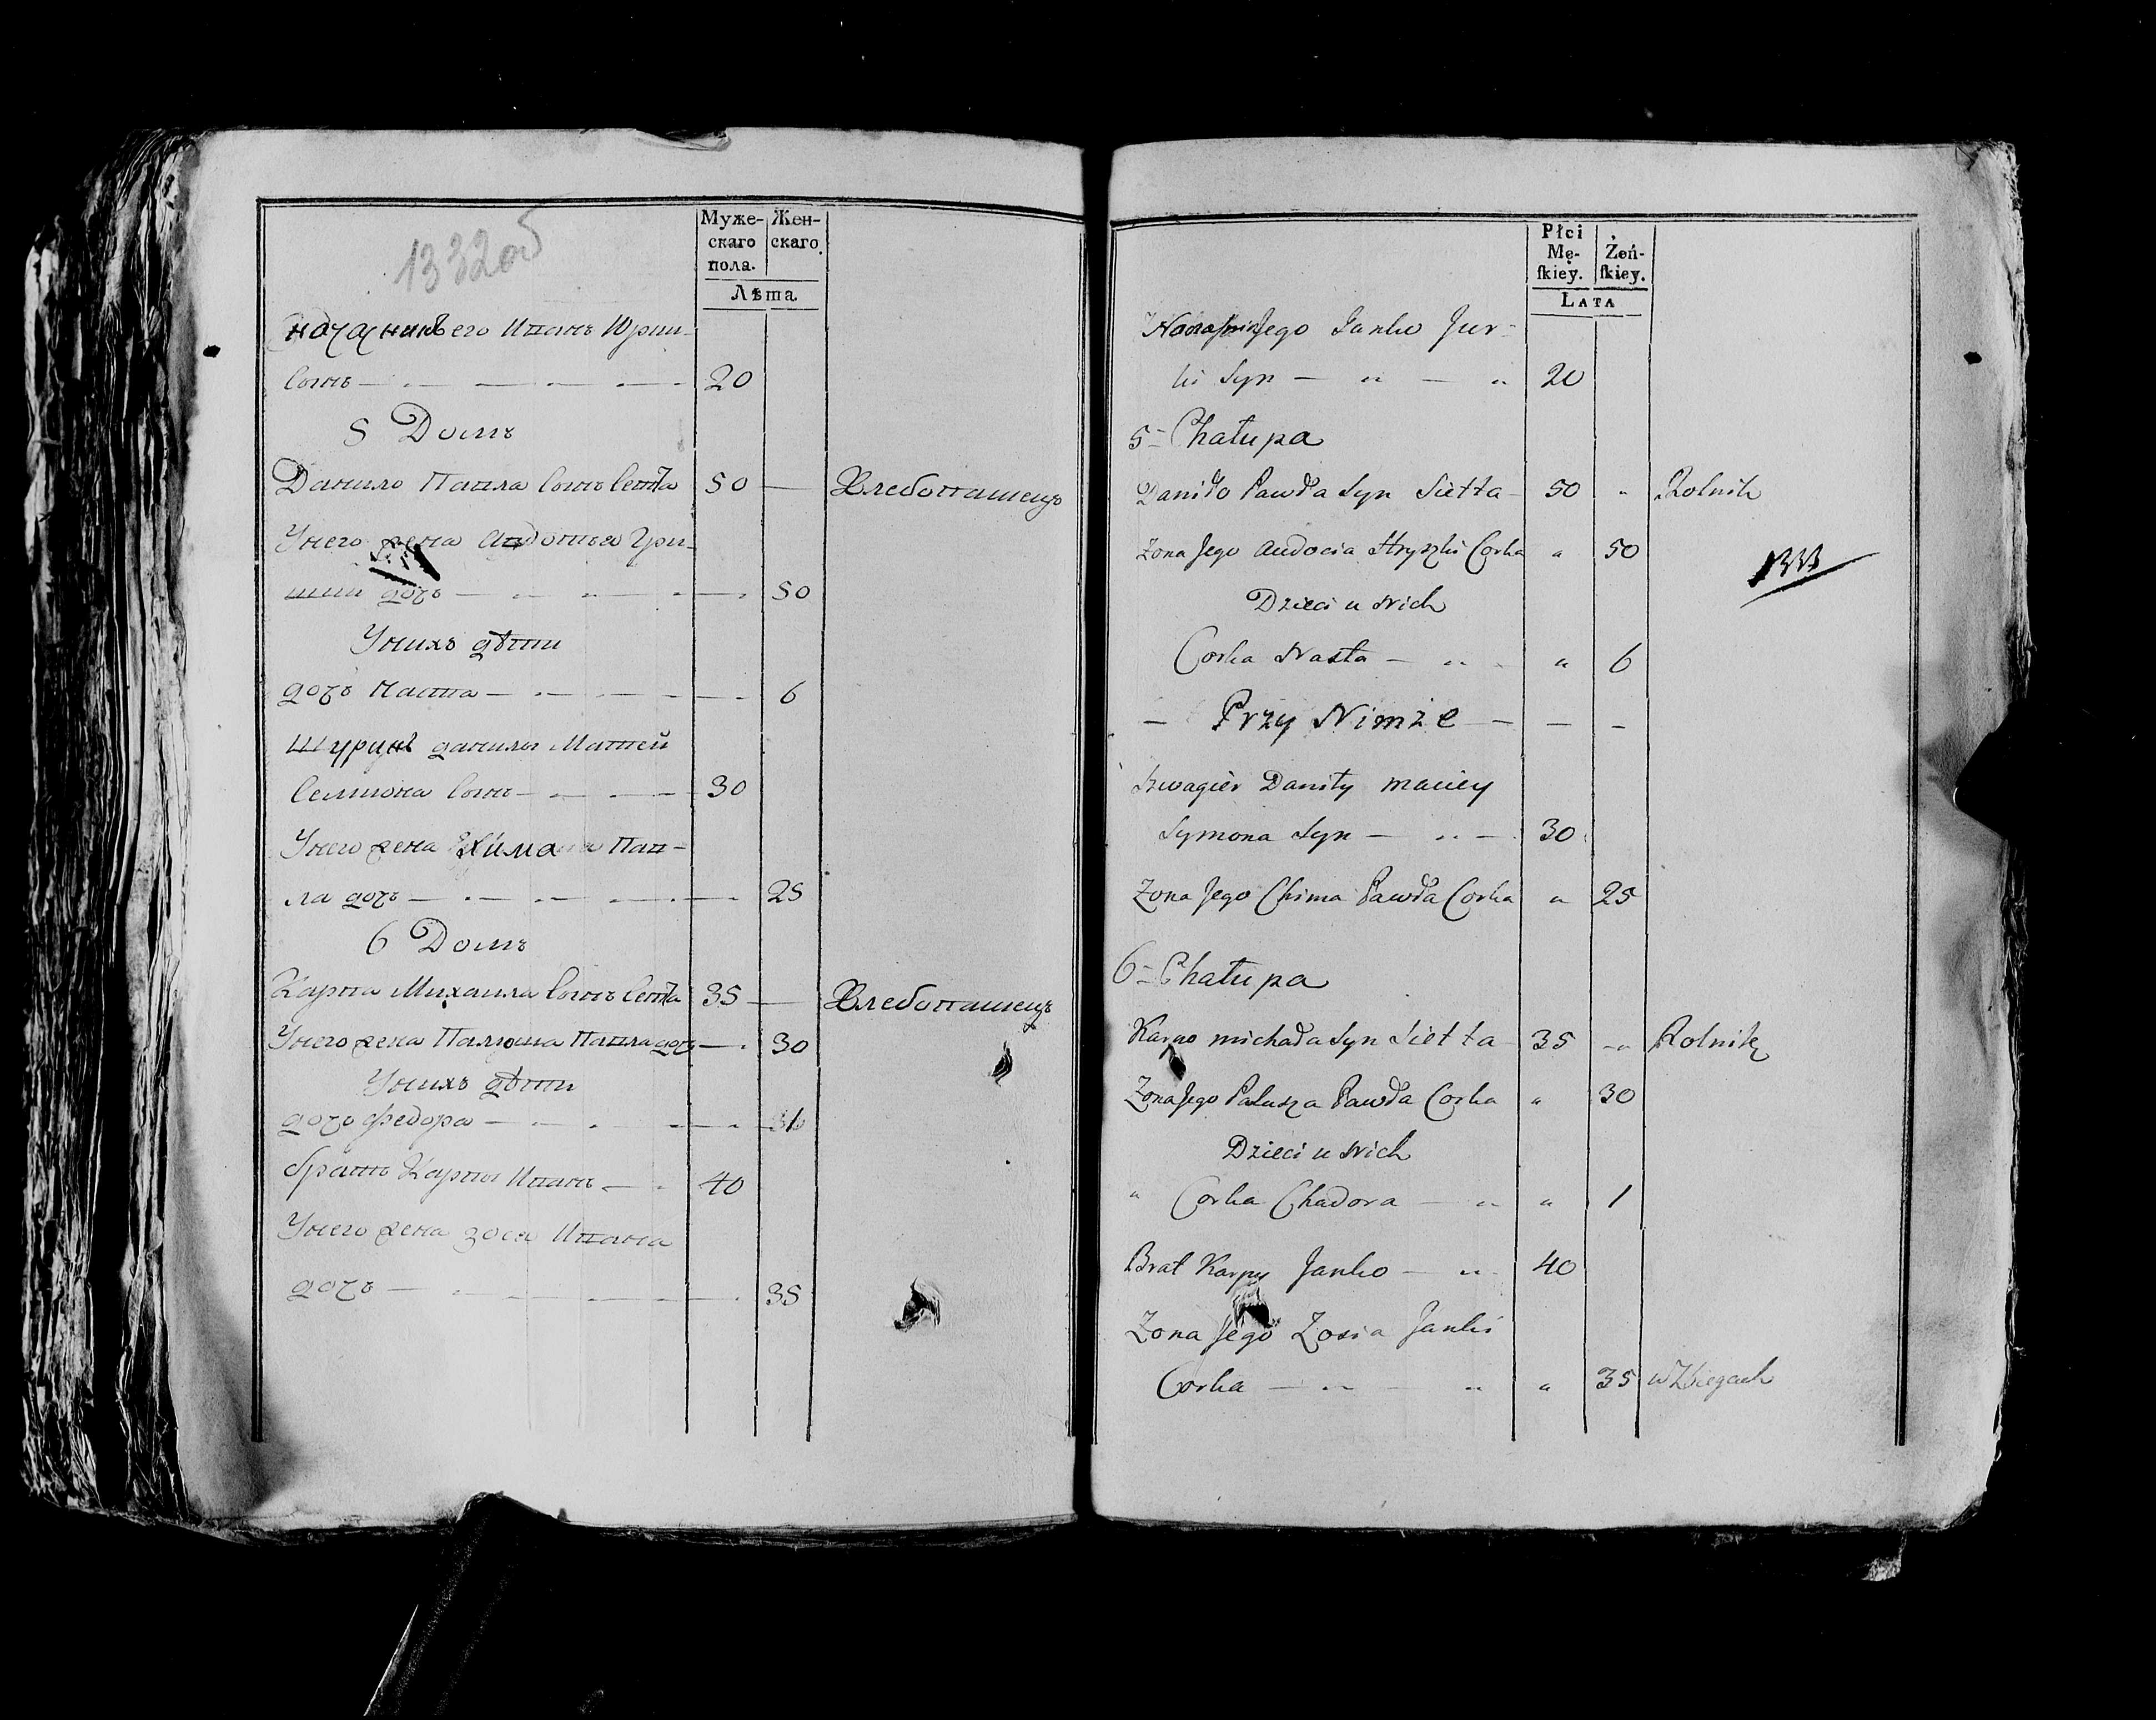 1332об
Муже-
скаго
пола.
Жен-
скаго
Лѣта
его Иванъ Юрки
сынъ 20
5 Домъ
Данило Павла сынъ 50 — Хлебопашецъ
У него жена Авдотья Гри-
шки дочь 50
У нихъ дѣти
дочь Наста 6
Шуринъ данилы Матвей
Семиона сынъ 30
У него жена Хима Пав-
ла дочь 25
6 Домъ
Карпа Михаила сынъ 35 — Хлебопашецъ
У него жена Палюша Павла дочь 30
У нихъ дѣти
дочь Федора
братъ Карпы Иванъ 40
У него жена Зося Ивана
дочь 35
Płci
Mę-
ſkiey.
Żeń-
ſkiey.
LATA
Jego Janko Jur-
ki Syn — „ — „ 20
5 = Chałupa
Daniło Pawła Syn Sietta 50 „ Rolnik
Zona Jego Audocia Hryszki Corka „ 50
1333
Dzieci u Nich
Corka Nasta — „ „ 6
— Przy Nimże — — —
Szwagier Daniły Maciey
Symona Syn — „ — 30
Zona Jego Chima Pawła Corka „ 25
6 = Chałupa
Karpo Michała Syn Sietta 35 „ Rolnik
Zona Jego Palusza Pawła Corka „ 30
Dzieci u Nich
„ Corka Chadora — „ „ 1
Brat Karpy Janko — „ 40
Zona Jego Zosia Janki
Corka — „ — „ „ 35 w Zbiegach